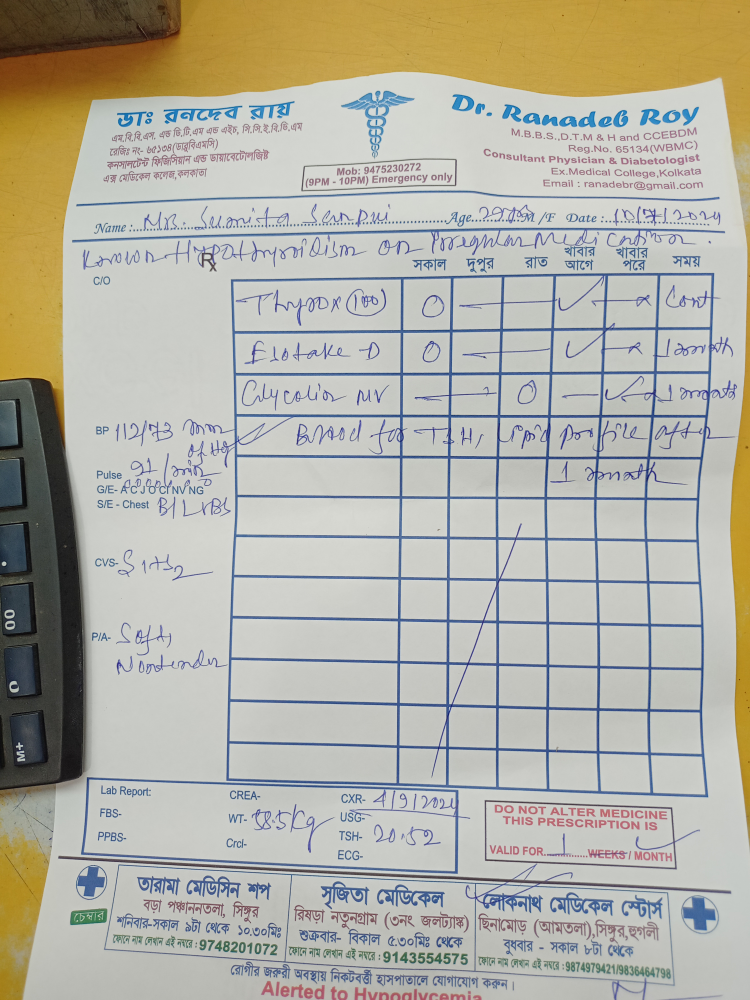 ডাঃ রনদেব রায়
এম.বি.বি.এস. এন্ড ডি.টি.এম এন্ড এইচ, সি.সি.ই.বি.ডি.এম
রেজিঃ নং- ৬৫১৩৪(ডাব্লুবিএমসি)
কনসালটেন্ট ফিজিসিয়ান এন্ড ডায়াবেটোলজিষ্ট
এক্স মেডিকেল কলেজ,কলকাতা
Mob: 9475230272
(9PM - 10PM) Emergency only
Dr. Ranadeb Roy
M.B.B.S.,D.T.M & H and CCEBDM
Reg.No. 65134(WBMC)
Consultant Physician & Diabetologist
Ex.Medical College,Kolkata
Email : ranadebr@gmail.com
Name: Mrs. Sumita Age M /F Date : 10/9/2024
Known Hypothyroidism on Irregular Medication.
Rx
C/O
সকাল দুপুর রাত খাবার আগে খাবার পরে সময়
Thyrox (100) O — ✓ — x Cont
D O — ✓ — x 1 month
MV — O — ✓ x 1 month
Blood for TSH, lipid profile after
1 month
BP 112/73 mm of Hg
Pulse 91/min
G/E- A C J O Cl NV NG
S/E - Chest B/L VBS
CVS- S1+S2
P/A- Soft,
Nontender
Lab Report:
FBS-
PPBS-
CREA-
WT- 58.5 kg
Crcl-
CXR- 4/9/2024
USG-
TSH- 20.52
ECG-
DO NOT ALTER MEDICINE
THIS PRESCRIPTION IS
VALID FOR 1 WEEKS / MONTH
চেম্বার
তারামা মেডিসিন শপ
বড়া পঞ্চাননতলা, সিঙ্গুর
শনিবার-সকাল ৯টা থেকে ১০.৩০মিঃ
ফোনে নাম লেখান এই নম্বরে : 9748201072
সৃজিতা মেডিকেল
রিষড়া নতুনগ্রাম (৩নং জলট্যাঙ্ক)
শুক্রবার- বিকাল ৫.৩০মিঃ থেকে
ফোনে নাম লেখান এই নম্বরে : 9143554575
লোকনাথ মেডিকেল স্টোর্স
ছিনামোড় (আমতলা),সিঙ্গুর,হুগলী
বুধবার - সকাল ৮টা থেকে
ফোনে নাম লেখান এই নম্বরে : 9874979421/9836464798
রোগীর জরুরী অবস্থায় নিকটবর্ত্তী হাসপাতালে যোগাযোগ করুন।
Alerted to Hypoglycemia
00
0
M+